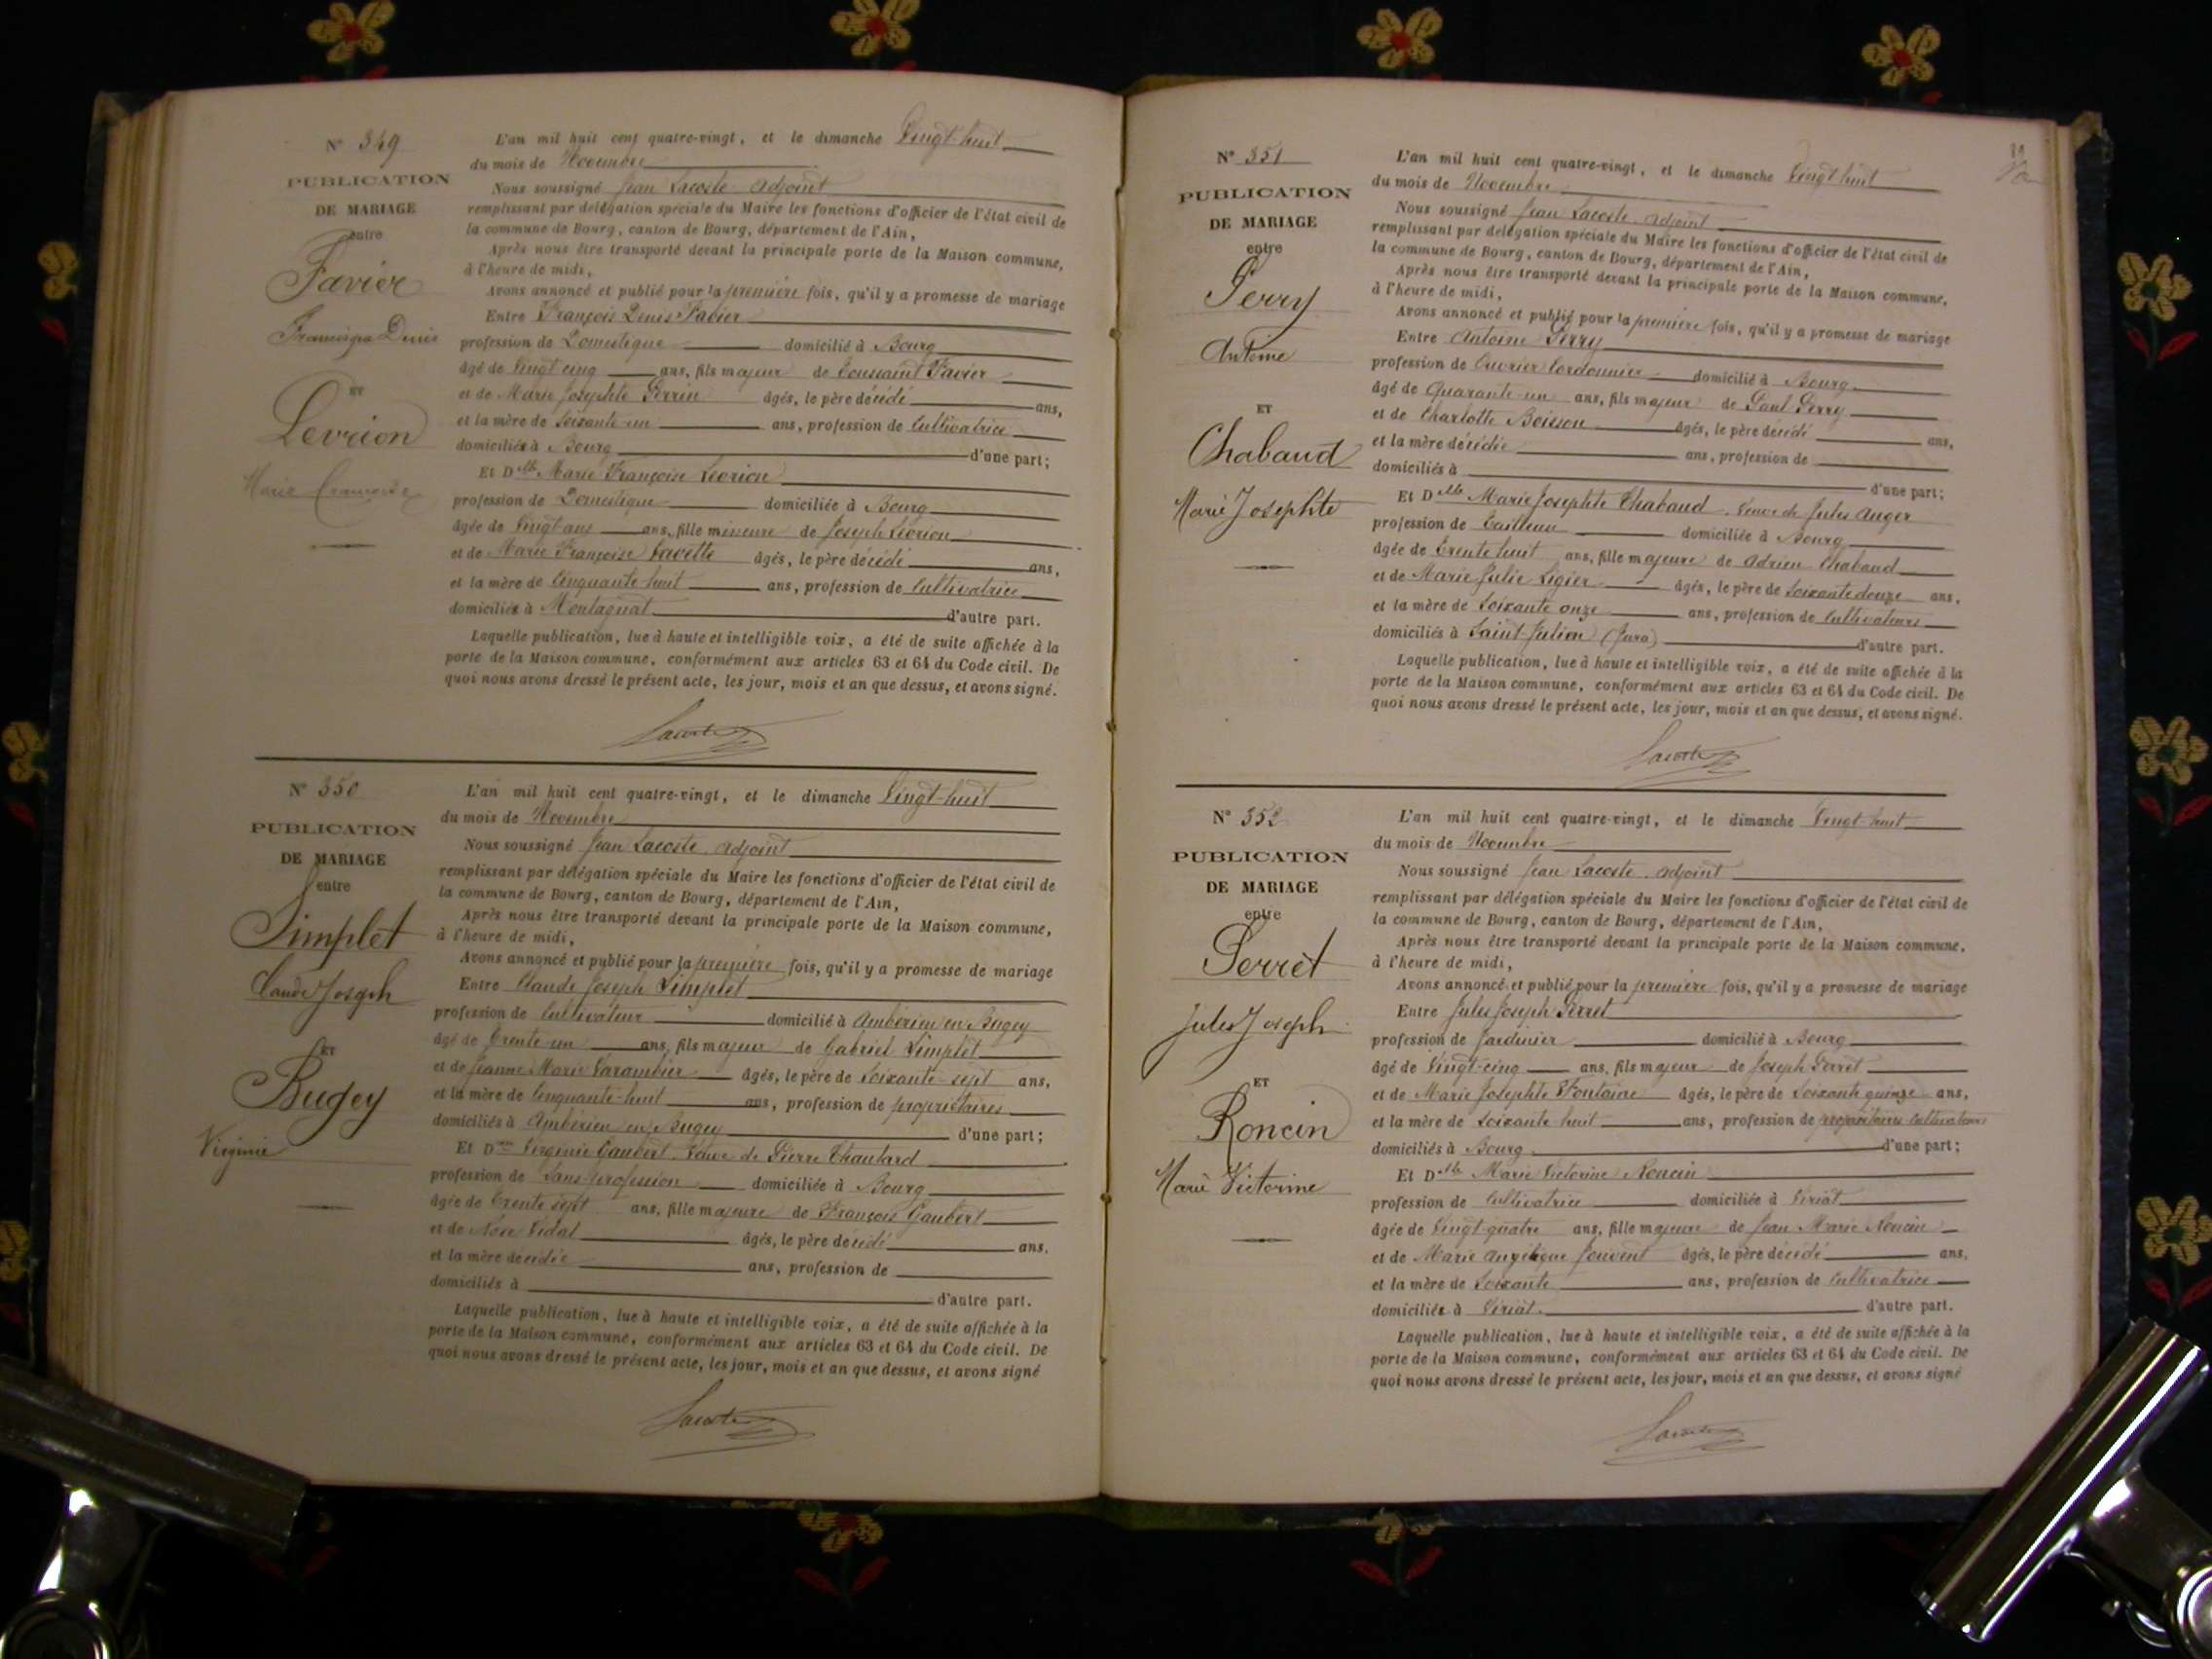 N° 349
PUBLICATION
DE MARIAGE
entre
Favier
François Denis
ET
Levrion
Marie Françoise
L'an mil huit cent quatre-vingt, et le dimanche Vingt-huit
du mois de Novembre
Nous soussigné Jean Lacoste adjoint
remplissant par délégation spéciale du Maire les fonctions d'officier de l'état civil de
la commune de Bourg, canton de Bourg, département de l'Ain,
Après nous être transporté devant la principale porte de la Maison commune,
à l'heure de midi,
Avons annoncé et publié pour la première fois, qu'il y a promesse de mariage
Entre François Denis Favier
profession de Domestique domicilié à Bourg
âgé de Vingt cinq ans, fils majeur de Toussaint Favier
et de Marie Josephte Perrin âgés, le père décédé ans,
et la mère de Soixante-un ans, profession de Cultivatrice
domiciliés à Bourg d'une part;
Et Dlle Marie Françoise Levrion
profession de Domestique domiciliée à Bourg
âgée de Vingt ans ans, fille mineure de Joseph Levrion
et de Marie Françoise âgés, le père décédé ans,
et la mère de Cinquante huit ans, profession de Cultivatrice
domiciliés à Montagnat d'autre part.
Laquelle publication, lue à haute et intelligible voix, a été de suite affichée à la
porte de la Maison commune, conformément aux articles 63 et 64 du Code civil. De
quoi nous avons dressé le présent acte, les jour, mois et an que dessus, et avons signé.
Lacoste
N° 350
PUBLICATION
DE MARIAGE
entre
Simplet
Claude Joseph
ET
Bugey
Virginie
L'an mil huit cent quatre-vingt, et le dimanche Vingt-huit
du mois de Novembre
Nous soussigné Jean Lacoste adjoint
remplissant par délégation spéciale du Maire les fonctions d'officier de l'état civil de
la commune de Bourg, canton de Bourg, département de l'Ain,
Après nous être transporté devant la principale porte de la Maison commune,
à l'heure de midi,
Avons annoncé et publié pour la première fois, qu'il y a promesse de mariage
Entre Claude Joseph Simplet
profession de Cultivateur domicilié à Ambérieu en Bugey
âgé de Trente-un ans, fils majeur de Gabriel Simplet
et de Jeanne Marie Varambier âgés, le père de Soixante-sept ans,
et la mère de Cinquante-huit ans, profession de propriétaires
domiciliés à Ambérieu en Bugey d'une part;
Et Dme Virginie Gaubert Veuve de Pierre Chautard
profession de Sans profession domiciliée à Bourg
âgée de Trente sept ans, fille majeure de François Gaubert
et de Vidal âgés, le père décédé ans,
et la mère décédée ans, profession de
domiciliés à d'autre part.
Laquelle publication, lue à haute et intelligible voix, a été de suite affichée à la
porte de la Maison commune, conformément aux articles 63 et 64 du Code civil. De
quoi nous avons dressé le présent acte, les jour, mois et an que dessus, et avons signé
Lacoste
N° 351
PUBLICATION
DE MARIAGE
entre
Perry
Antoine
ET
Chabaud
Marie Josephte
L'an mil huit cent quatre-vingt, et le dimanche Vingt-huit
du mois de Novembre
Nous soussigné Jean Lacoste adjoint
remplissant par délégation spéciale du Maire les fonctions d'officier de l'état civil de
la commune de Bourg, canton de Bourg, département de l'Ain,
Après nous être transporté devant la principale porte de la Maison commune,
à l'heure de midi,
Avons annoncé et publié pour la première fois, qu'il y a promesse de mariage
Entre Antoine Perry
profession de Ouvrier Cordonnier domicilié à Bourg
âgé de Quarante-un ans, fils majeur de Paul Perry
et de Charlotte Boisson âgés, le père décédé ans,
et la mère décédée ans, profession de
domiciliés à d'une part;
Et Dlle Marie Josephte Chabaud Veuve de Jules Auger
profession de domiciliée à Bourg
âgée de Trente huit ans, fille majeure de Adrien Chabaud
et de Marie Julie Ligier âgés, le père de Soixante douze ans,
et la mère de Soixante onze ans, profession de Cultivateurs
domiciliés à Saint-Julien (Jura) d'autre part.
Laquelle publication, lue à haute et intelligible voix, a été de suite affichée à la
porte de la Maison commune, conformément aux articles 63 et 64 du Code civil. De
quoi nous avons dressé le présent acte, les jour, mois et an que dessus, et avons signé.
Lacoste
N° 352
PUBLICATION
DE MARIAGE
entre
Perret
Jules Joseph
ET
Roncin
Marie Victorine
L'an mil huit cent quatre-vingt, et le dimanche Vingt-huit
du mois de Novembre
Nous soussigné Jean Lacoste adjoint
remplissant par délégation spéciale du Maire les fonctions d'officier de l'état civil de
la commune de Bourg, canton de Bourg, département de l'Ain,
Après nous être transporté devant la principale porte de la Maison commune,
à l'heure de midi,
Avons annoncé et publié pour la première fois, qu'il y a promesse de mariage
Entre Jules Joseph Perret
profession de Jardinier domicilié à Bourg
âgé de Vingt-cinq ans, fils majeur de Joseph Perret
et de Marie Josephte Fontaine âgés, le père de Soixante quinze ans,
et la mère de Soixante huit ans, profession de propriétaires Cultivateurs
domiciliés à Bourg d'une part;
Et Dlle Marie Victorine Roncin
profession de Cultivatrice domiciliée à Viriat
âgée de Vingt-quatre ans, fille majeure de Jean Marie Roncin
et de Marie Angélique Jouvent âgés, le père décédé ans,
et la mère de Soixante ans, profession de Cultivatrice
domiciliés à Viriat d'autre part.
Laquelle publication, lue à haute et intelligible voix, a été de suite affichée à la
porte de la Maison commune, conformément aux articles 63 et 64 du Code civil. De
quoi nous avons dressé le présent acte, les jour, mois et an que dessus, et avons signé
Lacoste